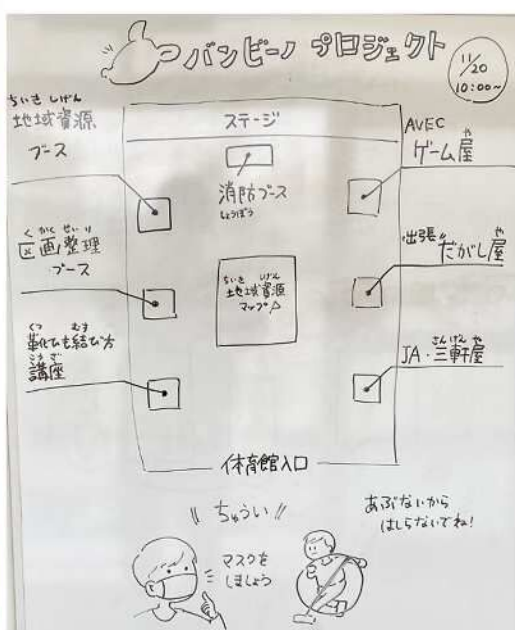 バンビーノ プロジェクト
11/20
10:00~
ちいき しげん
地域資源
ブース
ステージ
AVEC
や
ゲーム屋
消防ブース
しょうぼう
くかくせいり
区画整理
ブース
ちいき しげん
地域資源
マップ
出張
や
だがし屋
くつ むす
靴ひも結び方
こうざ
講座
さんげんや
JA・三軒屋
体育館入口
〃ちゅうい〃
マスクを
しましょう
あぶないから
はしらないでね!